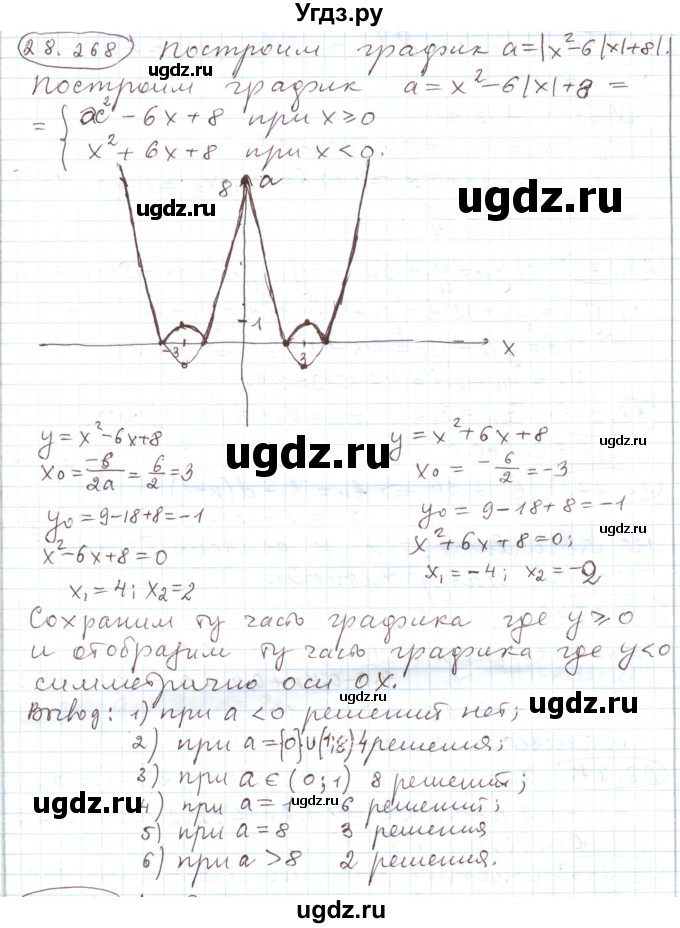 Угдз.ру
28.268 Построим график a=|x²-6|x|+8|.
Построим график a=x²-6|x|+8=
= { x²-6x+8 при x≥0
x²+6x+8 при x<0.
8 a
ugdz.ru ugdz.ru
1
-3 3 x
ugdz.ru
y=x²-6x+8 y=x²+6x+8
ugdz.ru ugdz.ru
x₀=-b/2a=6/2=3 x₀=-6/2=-3
y₀=9-18+8=-1 y₀=9-18+8=-1
ugdz.ru
x²-6x+8=0 x²+6x+8=0;
x₁=4; x₂=2 x₁=-4; x₂=-2
Сохраним ту часть графика где y≥0
и отобразим ту часть графика где y<0
симметрично оси OX.
ugdz.ru
Вывод: 1) при a<0 решений нет;
2) при a={0}∪(1;8) 4 решения;
3) при a∈(0;1) 8 решений;
ugdz.ru ugdz.ru
4) при a=1 6 решений;
5) при a=8 3 решения
6) при a>8 2 решения.
ugdz.ru
ugdz.ru